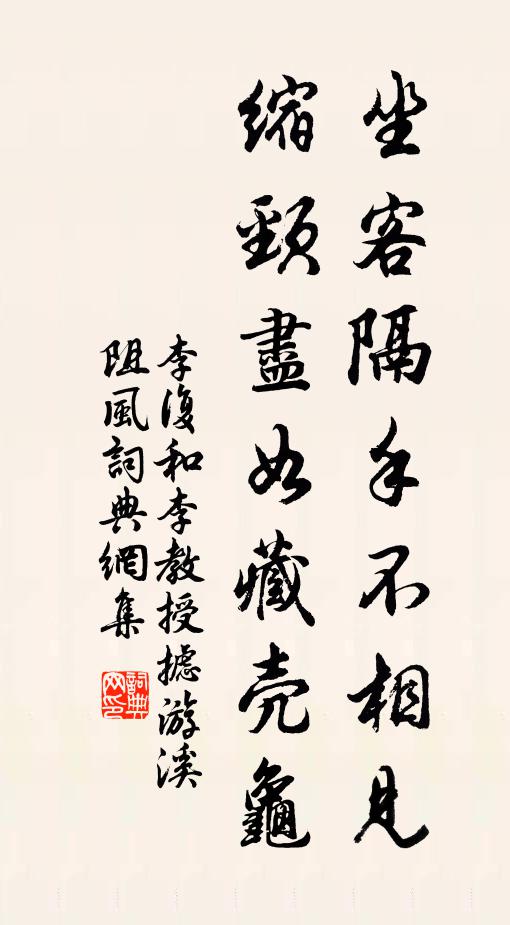 坐客隔手不相見
縮頸盡如藏壳龜
李復和李教授摅游溪
阻風詞典網集
詞典网印